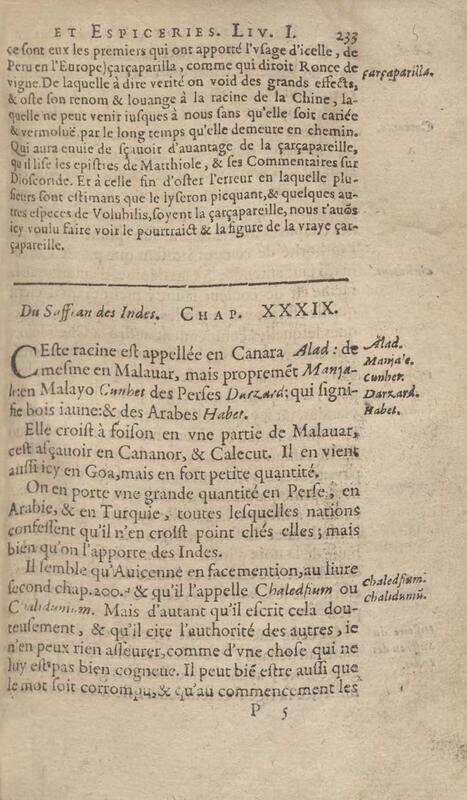 ET ESPICERIES. LIV. I. 233
ce sont eux les premiers qui ont apporté l'vsage d'icelle, de
Peru en l'Europe) çarçaparilla, comme qui diroit Ronce de
çarçaparilla.
vigne. De laquelle à dire verité on void des grands effects,
& oste son renom & louange à la racine de la Chine, la-
quelle ne peut venir iusques à nous sans qu'elle soit cariée
& vermoluë par le long temps qu'elle demeure en chemin.
Qui aura enuie de sçauoir d'auantage de la çarçapareille,
qu'il lise les epistres de Matthiole, & ses Commentaires sur
Dioscoride. Et à celle fin d'oster l'erreur en laquelle plu-
sieurs sont estimans que le lyseron picquant, & quelques au-
tres especes de Volubilis, soyent la çarçapareille, nous t'auõs
icy voulu faire voir le pourtraict & la figure de la vraye çar-
çapareille.
Du Saffran des Indes. CHAP. XXXIX.
CEste racine est appellée en Canara Alad: de
mesme en Malauar, mais propremẽt Manja-
le: en Malayo Cunhet des Perses Darzard: qui signi-
fie bois iaune: & des Arabes Habet.
Alad.
Manja'e.
Cunhet.
Darzard.
Habet.
Elle croist à foison en vne partie de Malauar,
cest asçauoir en Cananor, & Calecut. Il en vient
aussi icy en Goa, mais en fort petite quantité.
On en porte vne grande quantité en Perse, en
Arabie, & en Turquie, toutes lesquelles nations
confessent qu'il n'en croist point chés elles; mais
bien qu'on l'apporte des Indes.
Il semble qu'Auicenne en face mention, au liure
second chap. 200. & qu'il l'appelle Chaledfium ou
Chalidunium. Mais d'autant qu'il escrit cela dou-
chaledfium.
chalidumũ.
teusement, & qu'il cite l'authorité des autres, ie
n'en peux rien asseurer, comme d'vne chose qui ne
luy est pas bien cogneue. Il peut biẽ estre aussi que
le mot soit corrompu, & qu'au commencement les
P 5